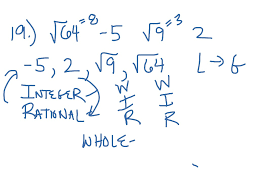 19.) √64 =8 -5 √9 =3 2
-5, 2, √9, √64 L→G
INTEGER W W
RATIONAL I I
R R
WHOLE-